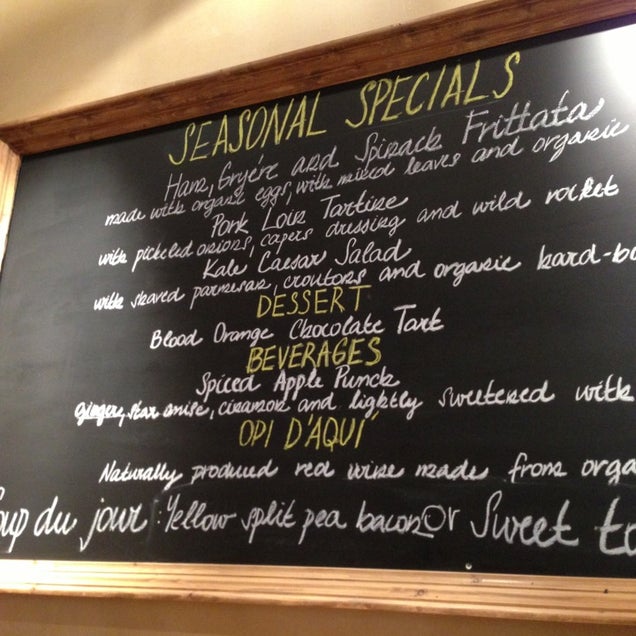 SEASONAL SPECIALS
Ham, Gryére and Spinach Frittata
made with organic eggs, with mixed leaves and organic
Pork Loin Tartine
with pickled onions, capers dressing and wild rocket
Kale Caesar Salad
with shaved parmesan, croutons and organic hard-bo
DESSERT
Blood Orange Chocolate Tart
BEVERAGES
Spiced Apple Punch
ginger, star anise, cinamon and lightly sweetened with
OPI D'AQUÍ
Naturally produced red wine made from orga
oup du jour: Yellow split pea bacon or Sweet to